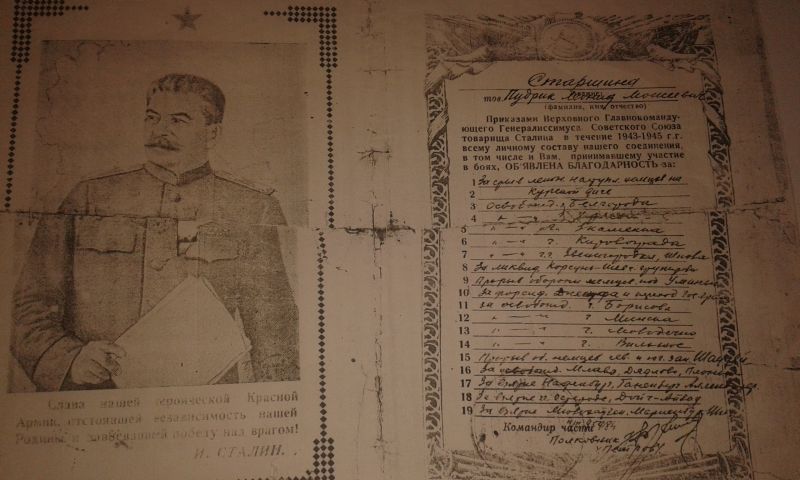 Слава нашей героической Красной
Армии, отстоявшей независимость нашей
Родины и завоевавшей победу над врагом!
И. СТАЛИН.
Старшина
тов. Пубрик Моисеевич
(фамилия, имя, отчество)
Приказами Верховного Главнокоманду-
ющего Генералиссимуса Советского Союза
товарища Сталина в течение 1943-1945 г.г.
всему личному составу нашего соединения,
в том числе и Вам, принимавшему участие
в боях, ОБ'ЯВЛЕНА БЛАГОДАРНОСТЬ за:
1 За срыв летн наступл. немцев на
2 Курской дуге
3 Освобожд. г. Белгорода
4 " — " г. Харькова
5 " — " Знаменка
6 " — " г. Кировограда
7 " — " г.г. Звенигородка, Шпола
8 За ликвид. Корсунь-Шевч. группировки
9 Прорыв обороны немцев под Уманью
10 За форсир. Днестра и
11 за освобожд. г. Борисова
12 " — " г. Минска
13 " — " г. Молодечно
14 " — " г. Вильнюс
15 Прорыв об. немцев сев и
16 За освобожд. Млава, Дзялдово, Плоньск
17 За взятие Найденбург, Танненберг, Алленштейн
18 За взятие г. Остероде, Дойч-Айлау
19 За взятие Мюльхаузен, Мариенбург
Командир части
Полковник
Петров